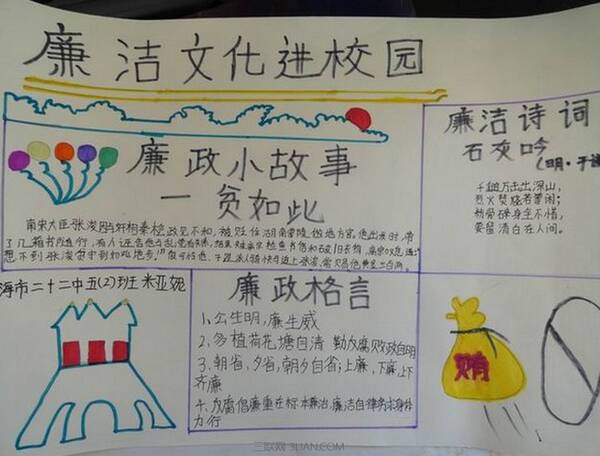 廉洁文化进校园
廉政小故事
一贫如此
南宋大臣张浚 奸相秦桧政见不和,被贬往湖南零陵做地方官。他出发时,带
了几箱书随行,有人诬告他 乱党 关系,结果 高宗检查书信和破旧衣物,高宗叹息
想不到张浚 守到如此地步! 他,于是派人骑快马追上张浚,赏赐他黄金三百两。
廉洁诗词
石灰吟
(明·于谦
千锤万击出深山,
烈火焚烧若等闲;
粉骨碎身全不惜,
要留清白在人间。
海市二十二中五(2)班 米亚妮
廉政格言
1、公生明,廉生威
2、多植荷花塘自清 勤反腐败政自明
3、朝省,夕省,朝夕自省;上廉,下廉,上下
齐廉
4、反腐倡廉重在标本兼治,廉洁自律 本身体
力行
贿
三联网 3LIAN.COM